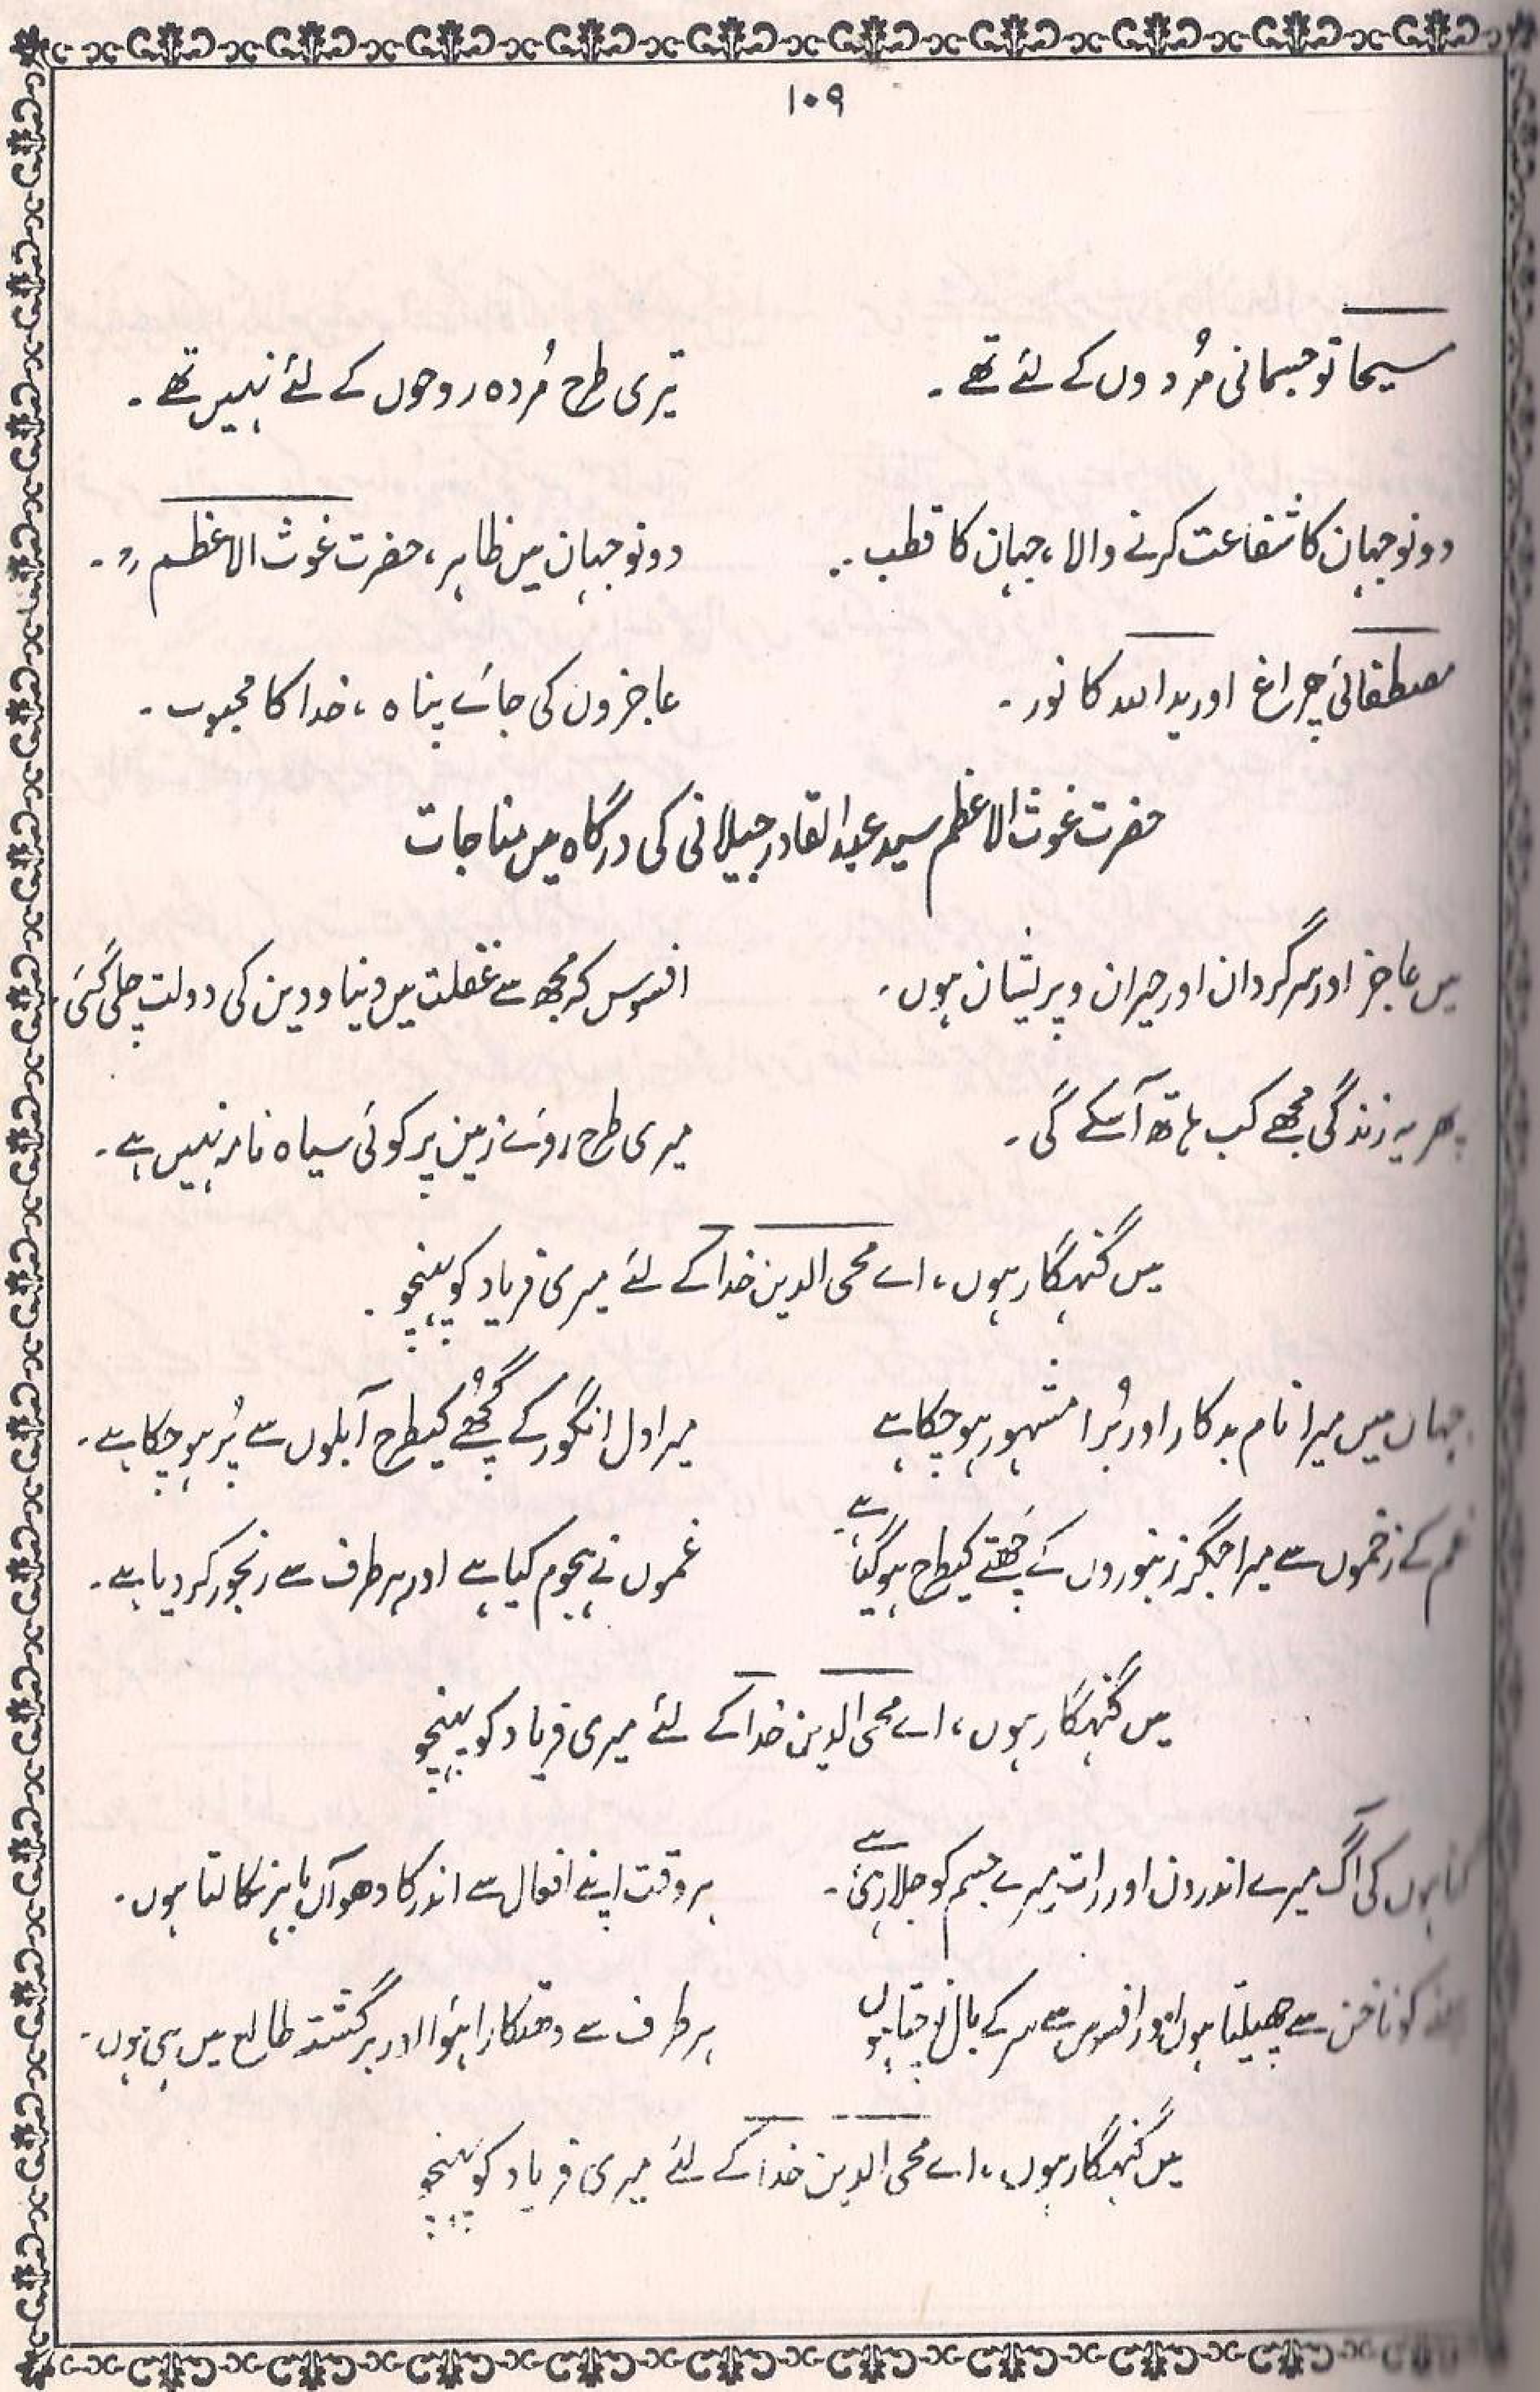 ۱۰۹
مسیحا تو جسمانی مُردوں کے لئے تھے۔ تیری طرح مُردہ روحوں کے لئے نہیں تھے۔
دونو جہان کا شفاعت کرنے والا، جہان کا قطب۔ دونو جہان میں ظاہر، حضرت غوث الاعظم رح۔
مصطفائی چراغ اور ید اللہ کا نور۔ عاجزوں کی جائے پناہ، خدا کا محبوب۔
حضرت غوث الاعظم سید عبدالقادر جیلانی کی درگاہ میں مناجات
میں عاجز اور سرگردان اور حیران و پریشان ہوں۔ افسوس کہ مجھ سے غفلت میں دنیا و دین کی دولت چلی گئی۔
پھر یہ زندگی مجھے کب ہاتھ آسکے گی۔ میری طرح روئے زمین پر کوئی سیاہ نامہ نہیں ہے۔
میں گنہگار ہوں، اے محی الدین خدا کے لئے میری فریاد کو پہنچو۔
جہاں میں میرا نام بدکار اور بُرا مشہور ہو چکا ہے میرا دل انگور کے گُچھے کیطرح آبلوں سے پُر ہو چکا ہے۔
غم کے زخموں سے میرا جگر زنبوروں کے چھتے کیطرح ہو گیا ہے غموں نے ہجوم کیا ہے اور ہر طرف سے رنجور کر دیا ہے۔
میں گنہگار ہوں، اے محی الدین خدا کے لئے میری فریاد کو پہنچو
گناہوں کی آگ میرے اندر دن اور رات میرے جسم کو جلا رہی ہے۔ ہر وقت اپنے افعال سے اندر کا دھوآں باہر نکالتا ہوں۔
کو ناخن سے چھیلتا ہوں اور افسوس سے سر کے بال نوچتا ہوں ہر طرف سے دھتکارا ہوا اور برگشتہ طالع میں ہی ہوں۔
میں گنہگار ہوں، اے محی الدین خدا کے لئے میری فریاد کو پہنچو